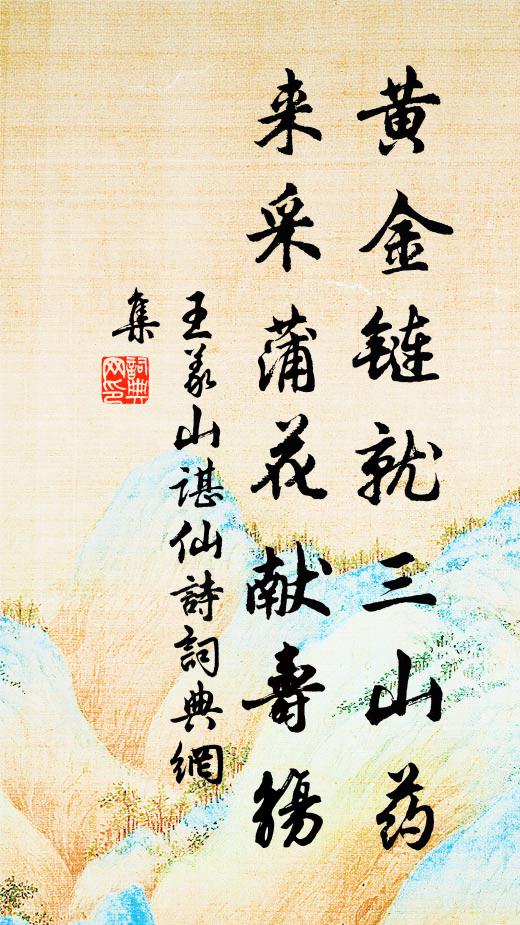 黄金鏈就三山药
来采蒲花献寿觞
王义山谌仙詩詞典網
集
詞典網印